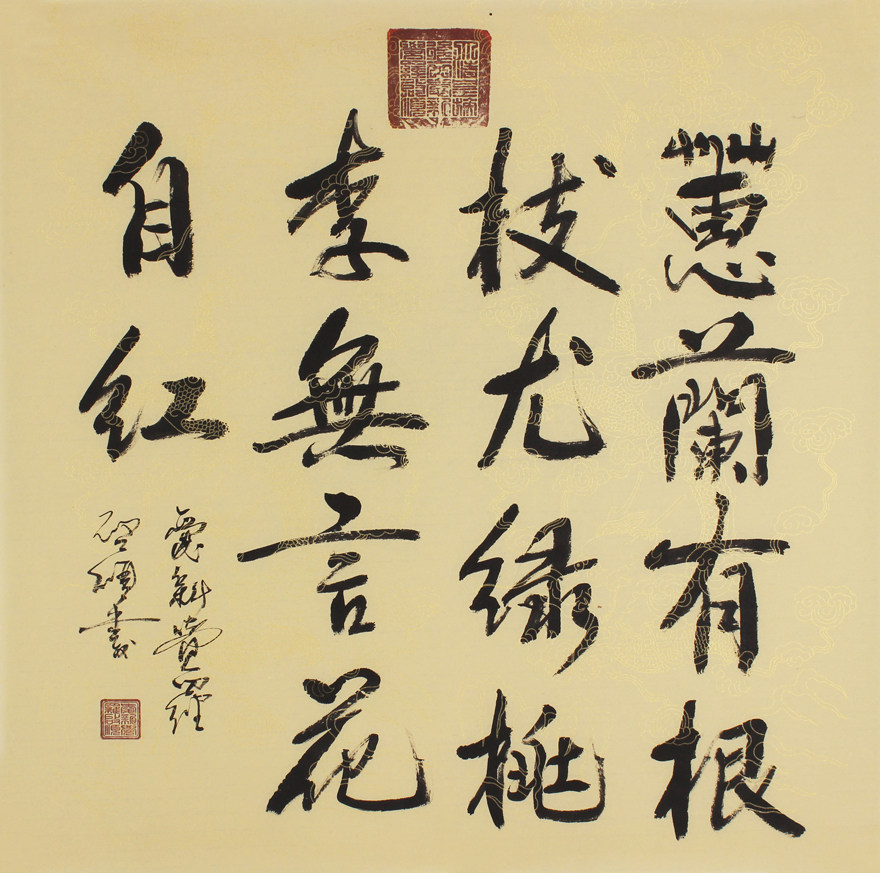 蕙蘭有根
枝尤绿桃
李無言花
自红
愛新覺羅
書